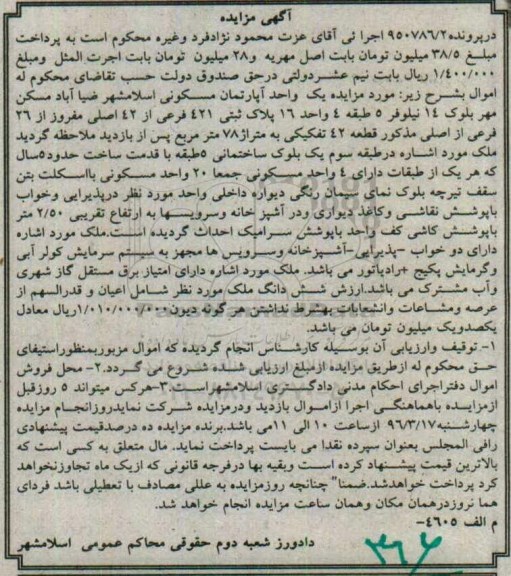 آگهی مزایده
درپرونده۹۵۰۷۸۶/۲ اجرا ئی آقای عزت محمود نژادفرد وغیره محکوم است به پرداخت
مبلغ ۳۸/۵ میلیون تومان بابت اصل مهریه و۲۸ میلیون تومان بابت اجرت المثل ومبلغ
۱/۴۰۰/۰۰۰ ریال بابت نیم عشردولتی درحق صندوق دولت حسب تقاضای محکوم له
اموال بشرح زیر: مورد مزایده یک واحد آپارتمان مسکونی اسلامشهر ضیا آباد مسکن
مهر بلوک ۱۴ نیلوفر ۵ طبقه ۴ واحد ۱۶ پلاک ثبتی ۴۲۱ فرعی از ۴۲ اصلی مفروز از ۲۶
فرعی از اصلی مذکور قطعه ۴۲ تفکیکی به متراژ۷۸ متر مربع پس از بازدید ملاحظه گردید
ملک مورد اشاره درطبقه سوم یک بلوک ساختمانی ۵طبقه با قدمت ساخت حدود۵سال
که هر یک از طبقات دارای ۴ واحد مسکونی جمعا ۲۰ واحد مسکونی بااسکلت بتن
سقف تیرچه بلوک نمای سیمان رنگی دیواره داخلی واحد مورد نظر درپذیرایی وخواب
باپوشش نقاشی وکاغذ دیواری ودر آشپز خانه وسرویسها به ارتفاع تقریبی ۲/۵۰ متر
باپوشش کاشی کف واحد باپوشش سرامیک احداث گردیده است.ملک مورد اشاره
دارای دو خواب –پذیرایی–آشپزخانه وسرویس ها مجهز به سیستم سرمایش کولر آبی
وگرمایش پکیج +رادیاتور می باشد. ملک مورد اشاره دارای امتیاز برق مستقل گاز شهری
وآب مشترک می باشد.ارزش شش دانگ ملک مورد نظر شامل اعیان و قدرالسهم از
عرصه ومشاعات وانشعابات بهشرط نداشتن هر گونه دیون۱/۰۱۰/۰۰۰/۰۰۰ریال معادل
یکصدویک میلیون تومان می باشد.
۱- توقیف وارزیابی آن بوسیله کارشناس انجام گردیده که اموال مزبوربمنظوراستیفای
حق محکوم له ازطریق مزایده ازمبلغ ارزیابی شده شروع می گردد.۲- محل فروش
اموال دفتراجرای احکام مدنی دادگستری اسلامشهراست.۳-هرکس میتواند ۵ روزقبل
ازمزایده باهماهنگی اجرا ازاموال بازدید ودرمزایده شرکت نمایدروزانجام مزایده
چهارشنبه۹۶/۳/۱۷ ازساعت ۱۰ الی ۱۱می باشد.برنده مزایده ده درصدقیمت پیشنهادی
رافی المجلس بعنوان سپرده نقدا می بایست پرداخت نماید. مال متعلق به کسی است که
بالاترین قیمت پیشنهاد کرده است وبقیه بها درفرجه قانونی که ازیک ماه تجاوزنخواهد
کرد پرداخت خواهدشد.ضمنا" چنانچه روزمزایده به عللی مصادف با تعطیلی باشد فردای
هما نروزدرهمان مکان وهمان ساعت مزایده انجام خواهد شد.
م الف ۴۶۰۵-
دادورز شعبه دوم حقوقی محاکم عمومی اسلامشهر